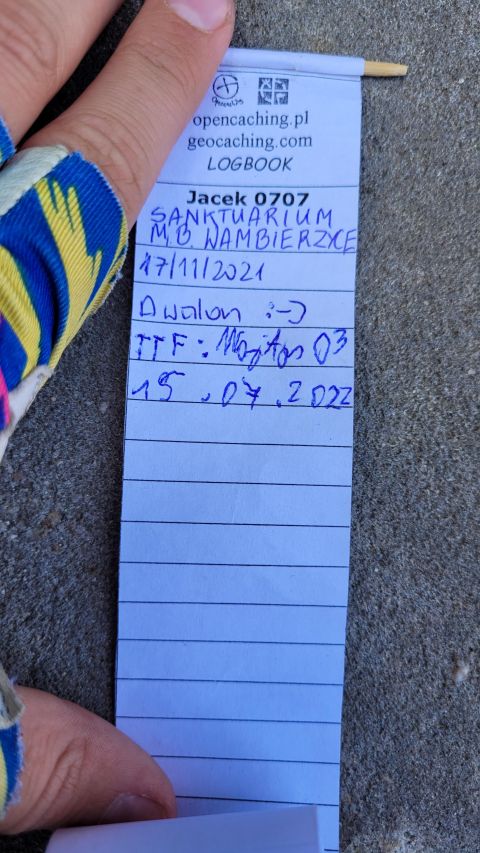 opencaching.pl
geocaching.com
LOGBOOK
Jacek 0707
SANKTUARIUM
M,B WAMBIERZYCE
17/11/2021
Awalon :-)
TTF: 03
15.07.2022